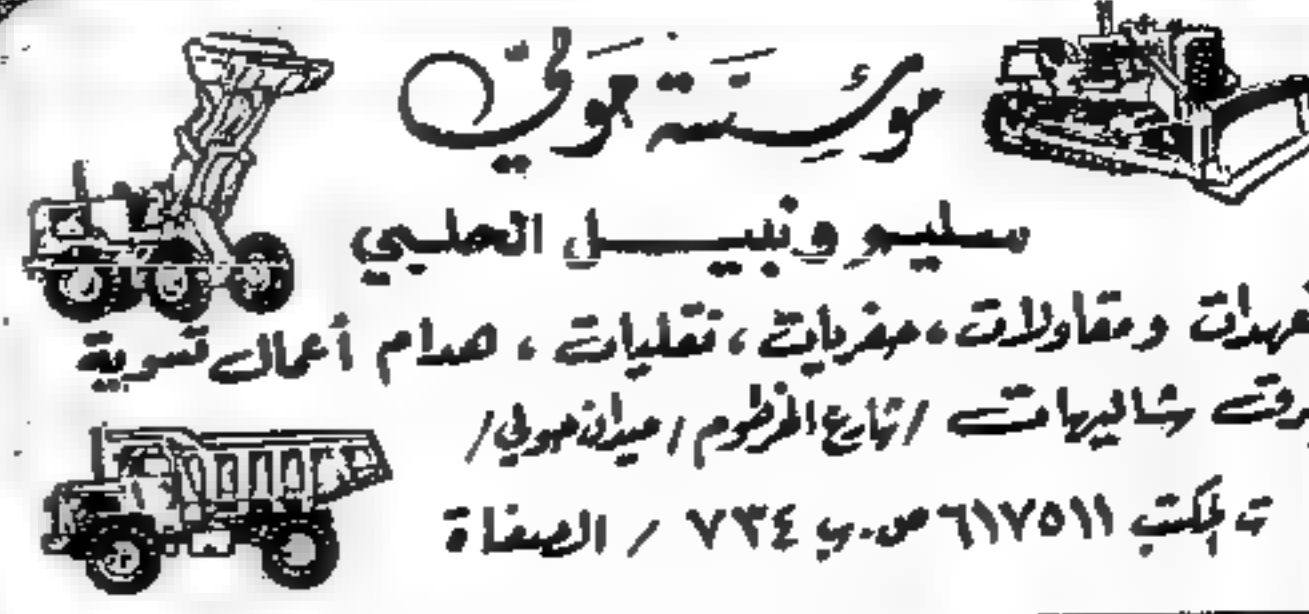 مؤسسة حولي
سليم ونبيل الحلبي
تعهدات ومقاولات، حفريات، نقليات، هدام أعمال تسوية
شاليهات / شارع الخرطوم / ميدان حولي /
ت المكتب ٦١٧٥١١ ص.ب ٧٣٤ / الصفاة